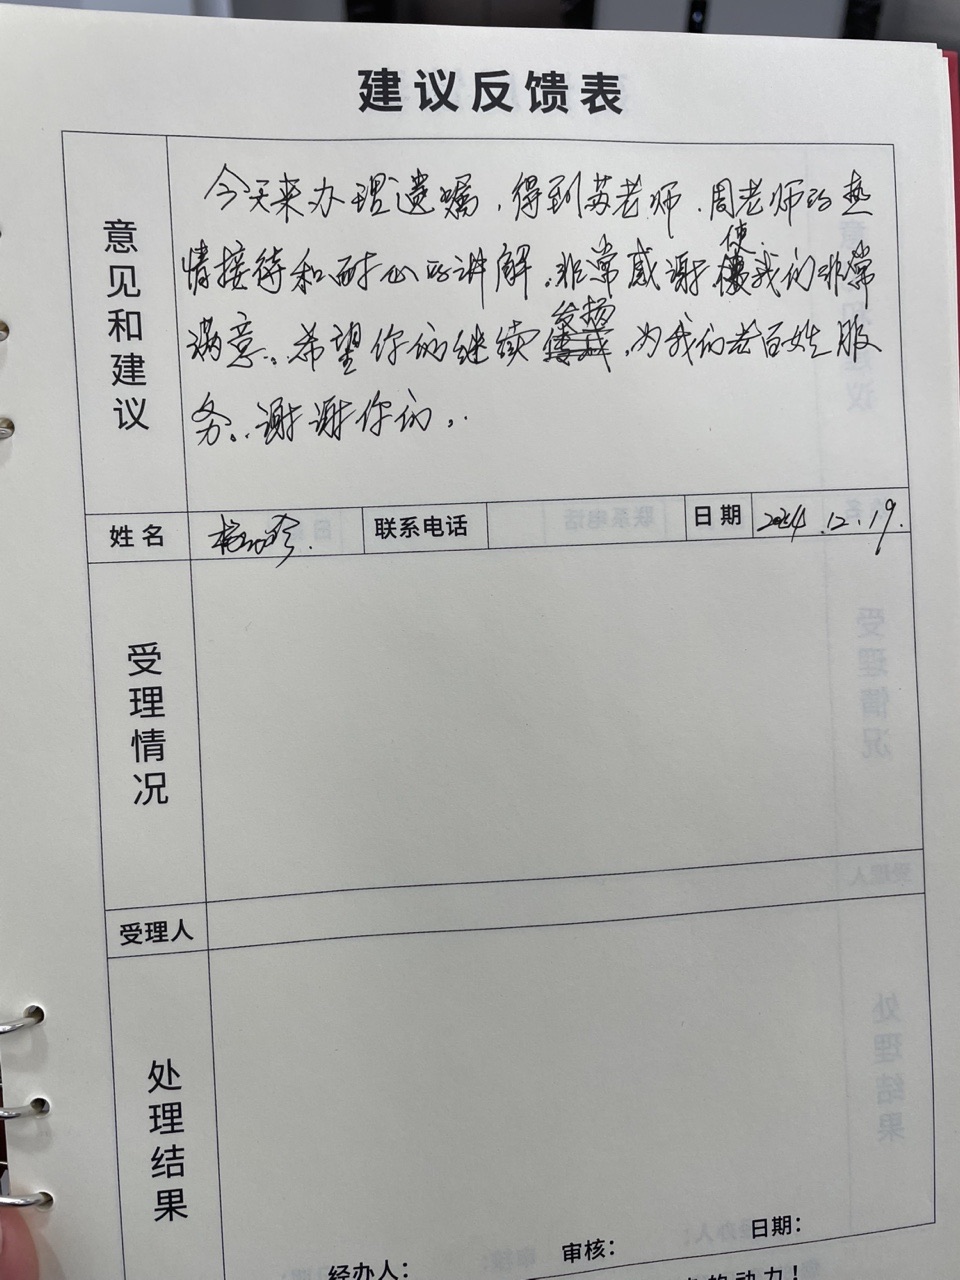 建议反馈表
意见和建议
今天来办理遗嘱，得到苏老师、周老师的热
情接待和耐心的讲解，非常感谢，使我们非常
满意。希望你们继续发扬，为我们老百姓服
务。谢谢你们。
姓名
联系电话
日期 2024.12.19.
受理情况
受理人
处理结果
经办人：
审核：
日期：
的动力！